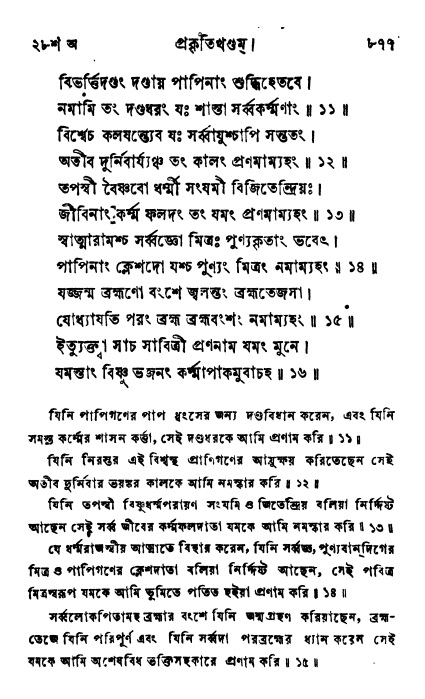 ২৮শ অ প্রকৃতিখণ্ডম্। ৮৭৭
বিভর্ত্তিদণ্ডং দণ্ডায় পাপিনাং শুদ্ধিহেতবে।
নমামি তং দণ্ডধরং যঃ শাস্তা সর্ব্বকর্ম্মণাং ॥ ১১ ॥
বিশ্বেচ কলযন্ত্যেব যঃ সর্ব্বাযুশ্চাপি সন্ততং।
অতীব দুর্নিবার্য্যঞ্চ তং কালং প্রণমাম্যহং ॥ ১২ ॥
তপস্বী বৈষ্ণবো ধর্ম্মী সংযমী বিজিতেন্দ্রিয়ঃ।
জীবিনাং কর্ম্ম ফলদং তং যমং প্রণমাম্যহং ॥ ১৩ ॥
স্বাত্মারামশ্চ সর্ব্বজ্ঞো মিত্রঃ পুণ্যকৃতাং ভবেৎ।
পাপিনাং ক্লেশদো যশ্চ পুণ্যং মিত্রং নমাম্যহং ॥ ১৪ ॥
যজ্জন্ম ব্রহ্মণো বংশে জ্বলন্তং ব্রহ্মতেজসা।
যোধ্যাযতি পরং ব্রহ্ম ব্রহ্মবংশং নমাম্যহং ॥ ১৫ ॥
ইত্যুক্ত্বা সাচ সাবিত্রী প্রণনাম যমং মুনে।
যমস্তাং বিষ্ণু ভজনং কর্ম্মাপাকমুবাচহ ॥ ১৬ ॥
যিনি পাপিগণের পাপ ধ্বংসের জন্য দণ্ডবিধান করেন, এবং যিনি
সমস্ত কর্ম্মের শাসন কর্ত্তা, সেই দণ্ডধরকে আমি প্রণাম করি ॥ ১১ ॥
যিনি নিরন্তর এই বিশ্বস্থ প্রাণিগণের আয়ুক্ষয় করিতেছেন সেই
অতীব দুর্নিবার ভয়ঙ্কর কালকে আমি নমস্কার করি ॥ ১২ ॥
যিনি তপস্বী বিষ্ণুধর্ম্মপরায়ণ সংযমি ও জিতেন্দ্রিয় বলিয়া নির্দ্দিষ্ট
আছেন সেই সর্ব্ব জীবের কর্ম্মফলদাতা যমকে আমি নমস্কার করি ॥ ১৩ ॥
যে ধর্ম্মরাজস্বীয় আত্মাতে বিহার করেন, যিনি সর্ব্বজ্ঞ, পুণ্যবান্‌দিগের
মিত্র ও পাপিগণের ক্লেশদাতা বলিয়া নির্দ্দিষ্ট আছেন, সেই পবিত্র
মিত্রস্বরূপ যমকে আমি ভূমিতে পতিত হইয়া প্রণাম করি ॥ ১৪ ॥
সর্ব্বলোকপিতামহ ব্রহ্মার বংশে যিনি জন্মগ্রহণ করিয়াছেন, ব্রহ্ম-
তেজে যিনি পরিপূর্ণ এবং যিনি সর্ব্বদা পরব্রহ্মের ধ্যান করেন সেই
যমকে আমি অশেষবিধ ভক্তিসহকারে প্রণাম করি ॥ ১৫ ॥